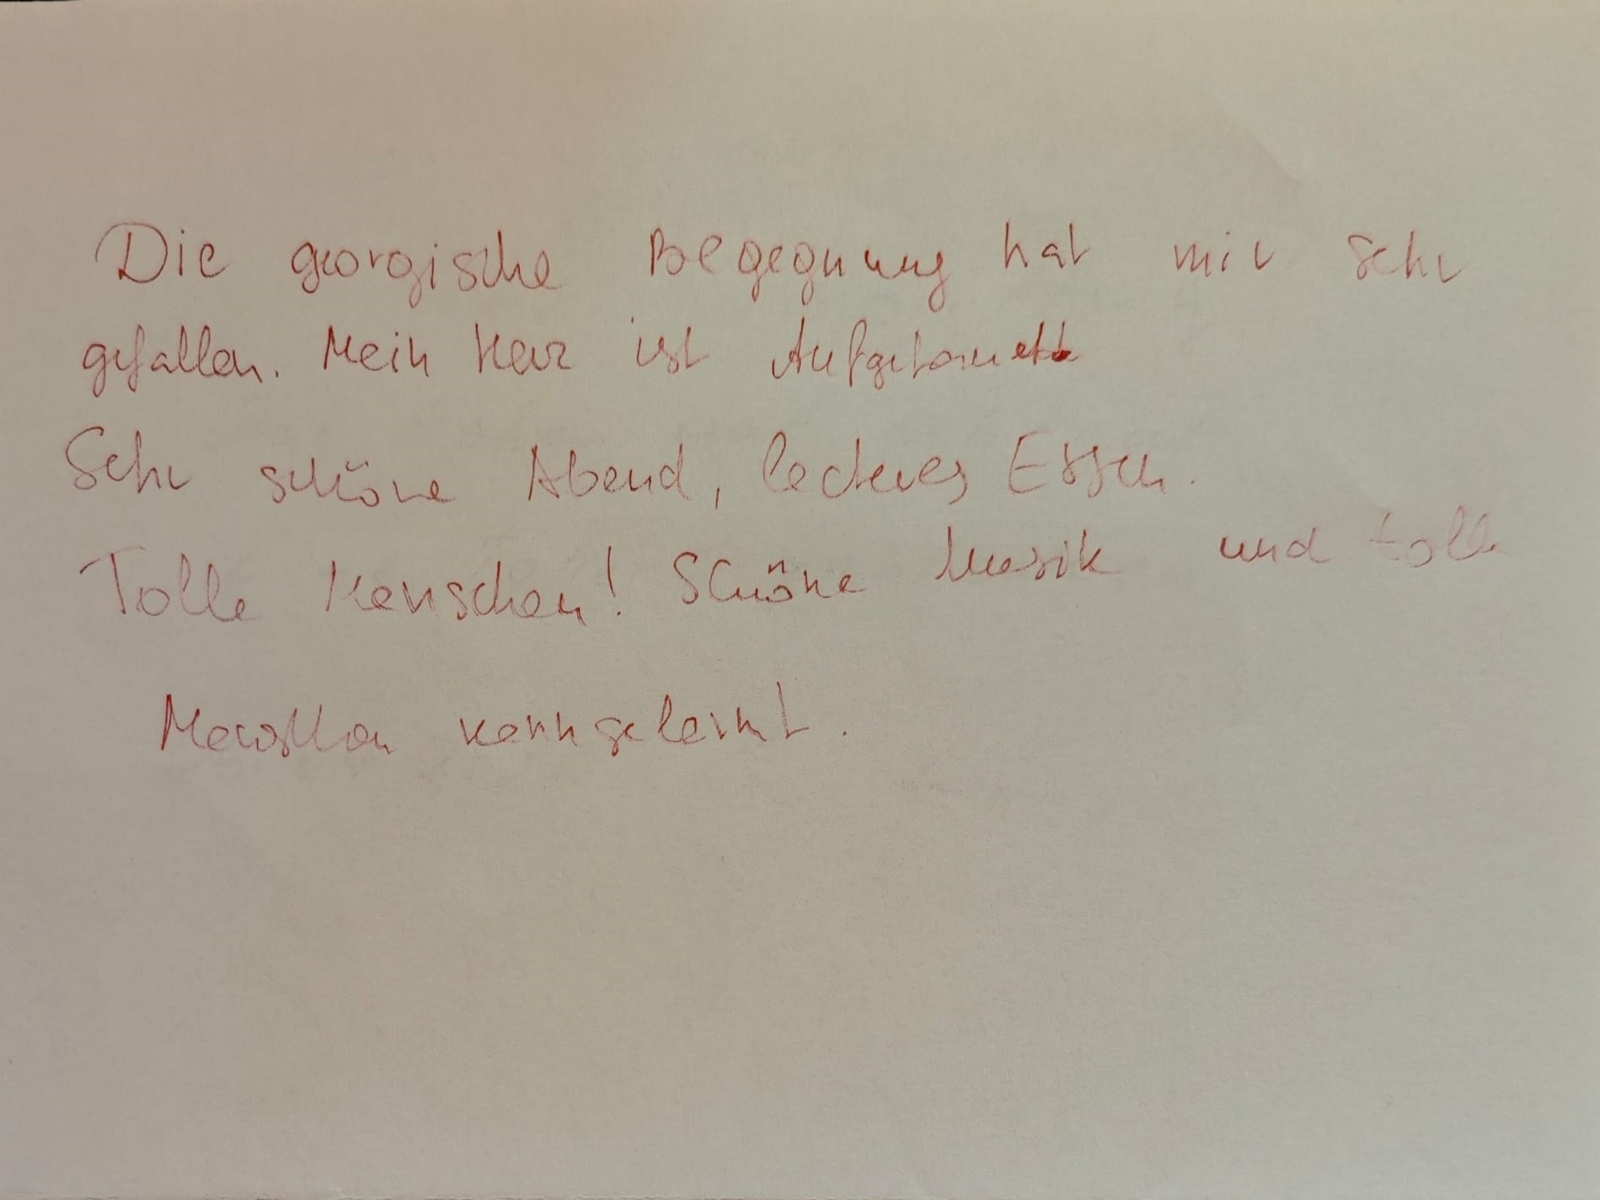 Die georgische Begegnung hat mir sehr
gefallen. Mein Herz ist
Sehr schöne Abend, leckeres Essen.
Tolle Menschen! Schöne Musik und tolle
Menschen kenngelernt.